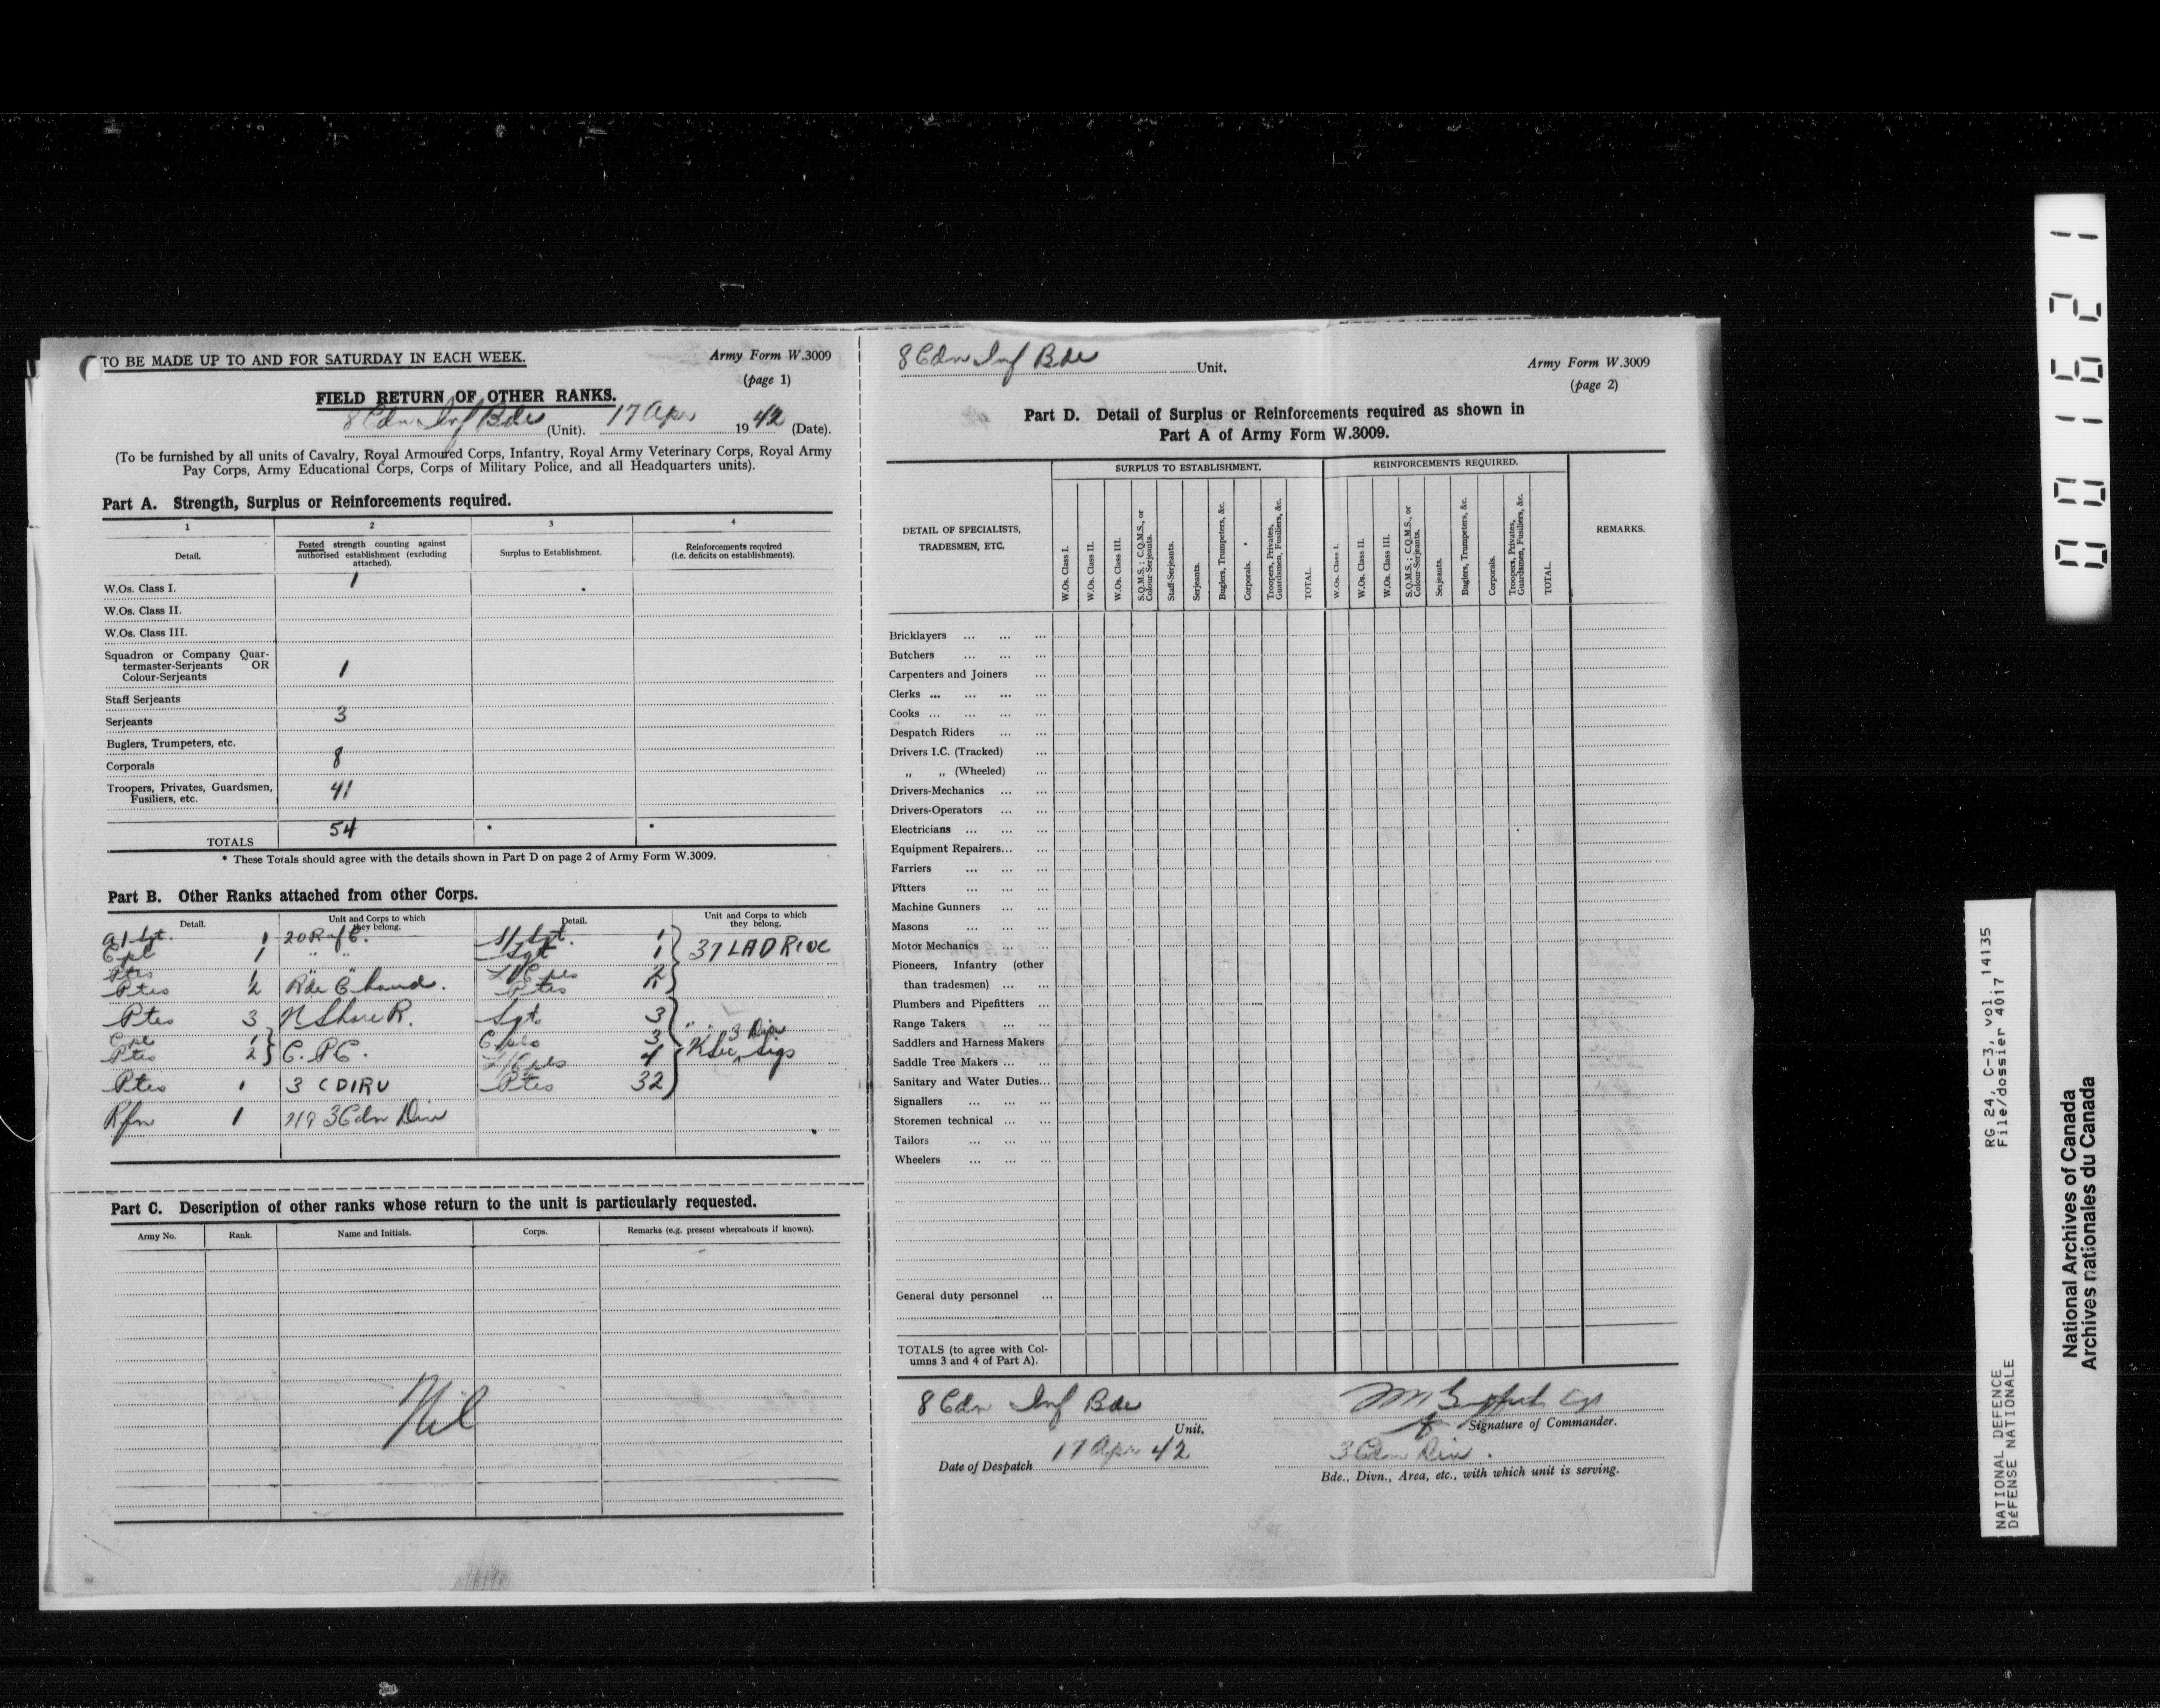 TO BE MADE UP TO AND FOR SATURDAY IN EACH WEEK.
Army Form W.3009
(page 1)
FIELD RETURN OF OTHER RANKS.
8 Cdn Inf Bde (Unit). 17 Apr 1942 (Date).
(To be furnished by all units of Cavalry, Royal Armoured Corps, Infantry, Royal Army Veterinary Corps, Royal Army
Pay Corps, Army Educational Corps, Corps of Military Police, and all Headquarters units).
Part A. Strength, Surplus or Reinforcements required.
1 2 3 4
Detail.
Posted strength counting against
authorised establishment (excluding
attached).
Surplus to Establishment.
Reinforcements required
(i.e. deficits on establishments).
W.Os. Class I. 1
W.Os. Class II.
W.Os. Class III.
Squadron or Company Quar-
termaster-Serjeants OR
Colour-Serjeants 1
Staff Serjeants
Serjeants 3
Buglers, Trumpeters, etc.
Corporals 8
Troopers, Privates, Guardsmen,
Fusiliers, etc. 41
TOTALS 54 * *
* These Totals should agree with the details shown in Part D on page 2 of Army Form W.3009.
Part B. Other Ranks attached from other Corps.
Detail.
Unit and Corps to which
they belong.
Detail.
Unit and Corps to which
they belong.
A/Sgt. 1
Cpl 1 " "
Ptes 1 "
Ptes 2 R de Chaud.
Ptes 3 N Shore R.
Cpl 1
Ptes 2 } C.P.C.
Ptes 1 3 CDIRU
Rfn 1 3 Cdn Div
S/Sgt. 1
Sgt 1 } 37 LAD RCOC
L/Cpls 2
Ptes
Sgt. 3
Cpls 3 3 Div
L/Cpls 4 } K Sec, Sigs
Ptes 32
Part C. Description of other ranks whose return to the unit is particularly requested.
Army No. Rank. Name and Initials. Corps. Remarks (e.g. present whereabouts if known).
Nil
8 Cdn Inf Bde Unit.
Army Form W.3009
(page 2)
Part D. Detail of Surplus or Reinforcements required as shown in
Part A of Army Form W.3009.
DETAIL OF SPECIALISTS,
TRADESMEN, ETC.
SURPLUS TO ESTABLISHMENT.
W.Os. Class I.
W.Os. Class II.
W.Os. Class III.
S.Q.M.S.; C.Q.M.S., or
Colour Serjeants.
Staff-Serjeants.
Serjeants.
Buglers, Trumpeters, &c.
Corporals.
Troopers, Privates,
Guardsmen, Fusiliers, &c.
TOTAL.
REINFORCEMENTS REQUIRED.
W.Os. Class I.
W.Os. Class II.
W.Os. Class III.
S.Q.M.S.; C.Q.M.S., or
Colour-Serjeants.
Serjeants.
Buglers, Trumpeters, &c.
Corporals.
Troopers, Privates,
Guardsmen, Fusiliers, &c.
TOTAL.
REMARKS.
Bricklayers ... ... ...
Butchers ... ... ...
Carpenters and Joiners ...
Clerks ... ... ... ...
Cooks ... ... ... ...
Despatch Riders ... ...
Drivers I.C. (Tracked) ...
„ „ (Wheeled) ...
Drivers-Mechanics ... ...
Drivers-Operators ... ...
Electricians ... ... ...
Equipment Repairers... ...
Farriers ... ... ...
Fitters ... ... ...
Machine Gunners ... ...
Masons ... ... ...
Motor Mechanics ... ...
Pioneers, Infantry (other
than tradesmen) ... ...
Plumbers and Pipefitters ...
Range Takers ... ...
Saddlers and Harness Makers
Saddle Tree Makers ... ...
Sanitary and Water Duties...
Signallers ... ... ...
Storemen technical ... ...
Tailors ... ... ...
Wheelers ... ... ...
General duty personnel ...
TOTALS (to agree with Col-
umns 3 and 4 of Part A).
8 Cdn Inf Bde
Unit.
Date of Despatch 17 Apr 42
Signature of Commander.
3 Cdn Div.
Bde., Divn., Area, etc., with which unit is serving.
001621
RG 24, C-3, vol. 14135
File/dossier 4017
NATIONAL DEFENCE
DÉFENSE NATIONALE
National Archives of Canada
Archives nationales du Canada